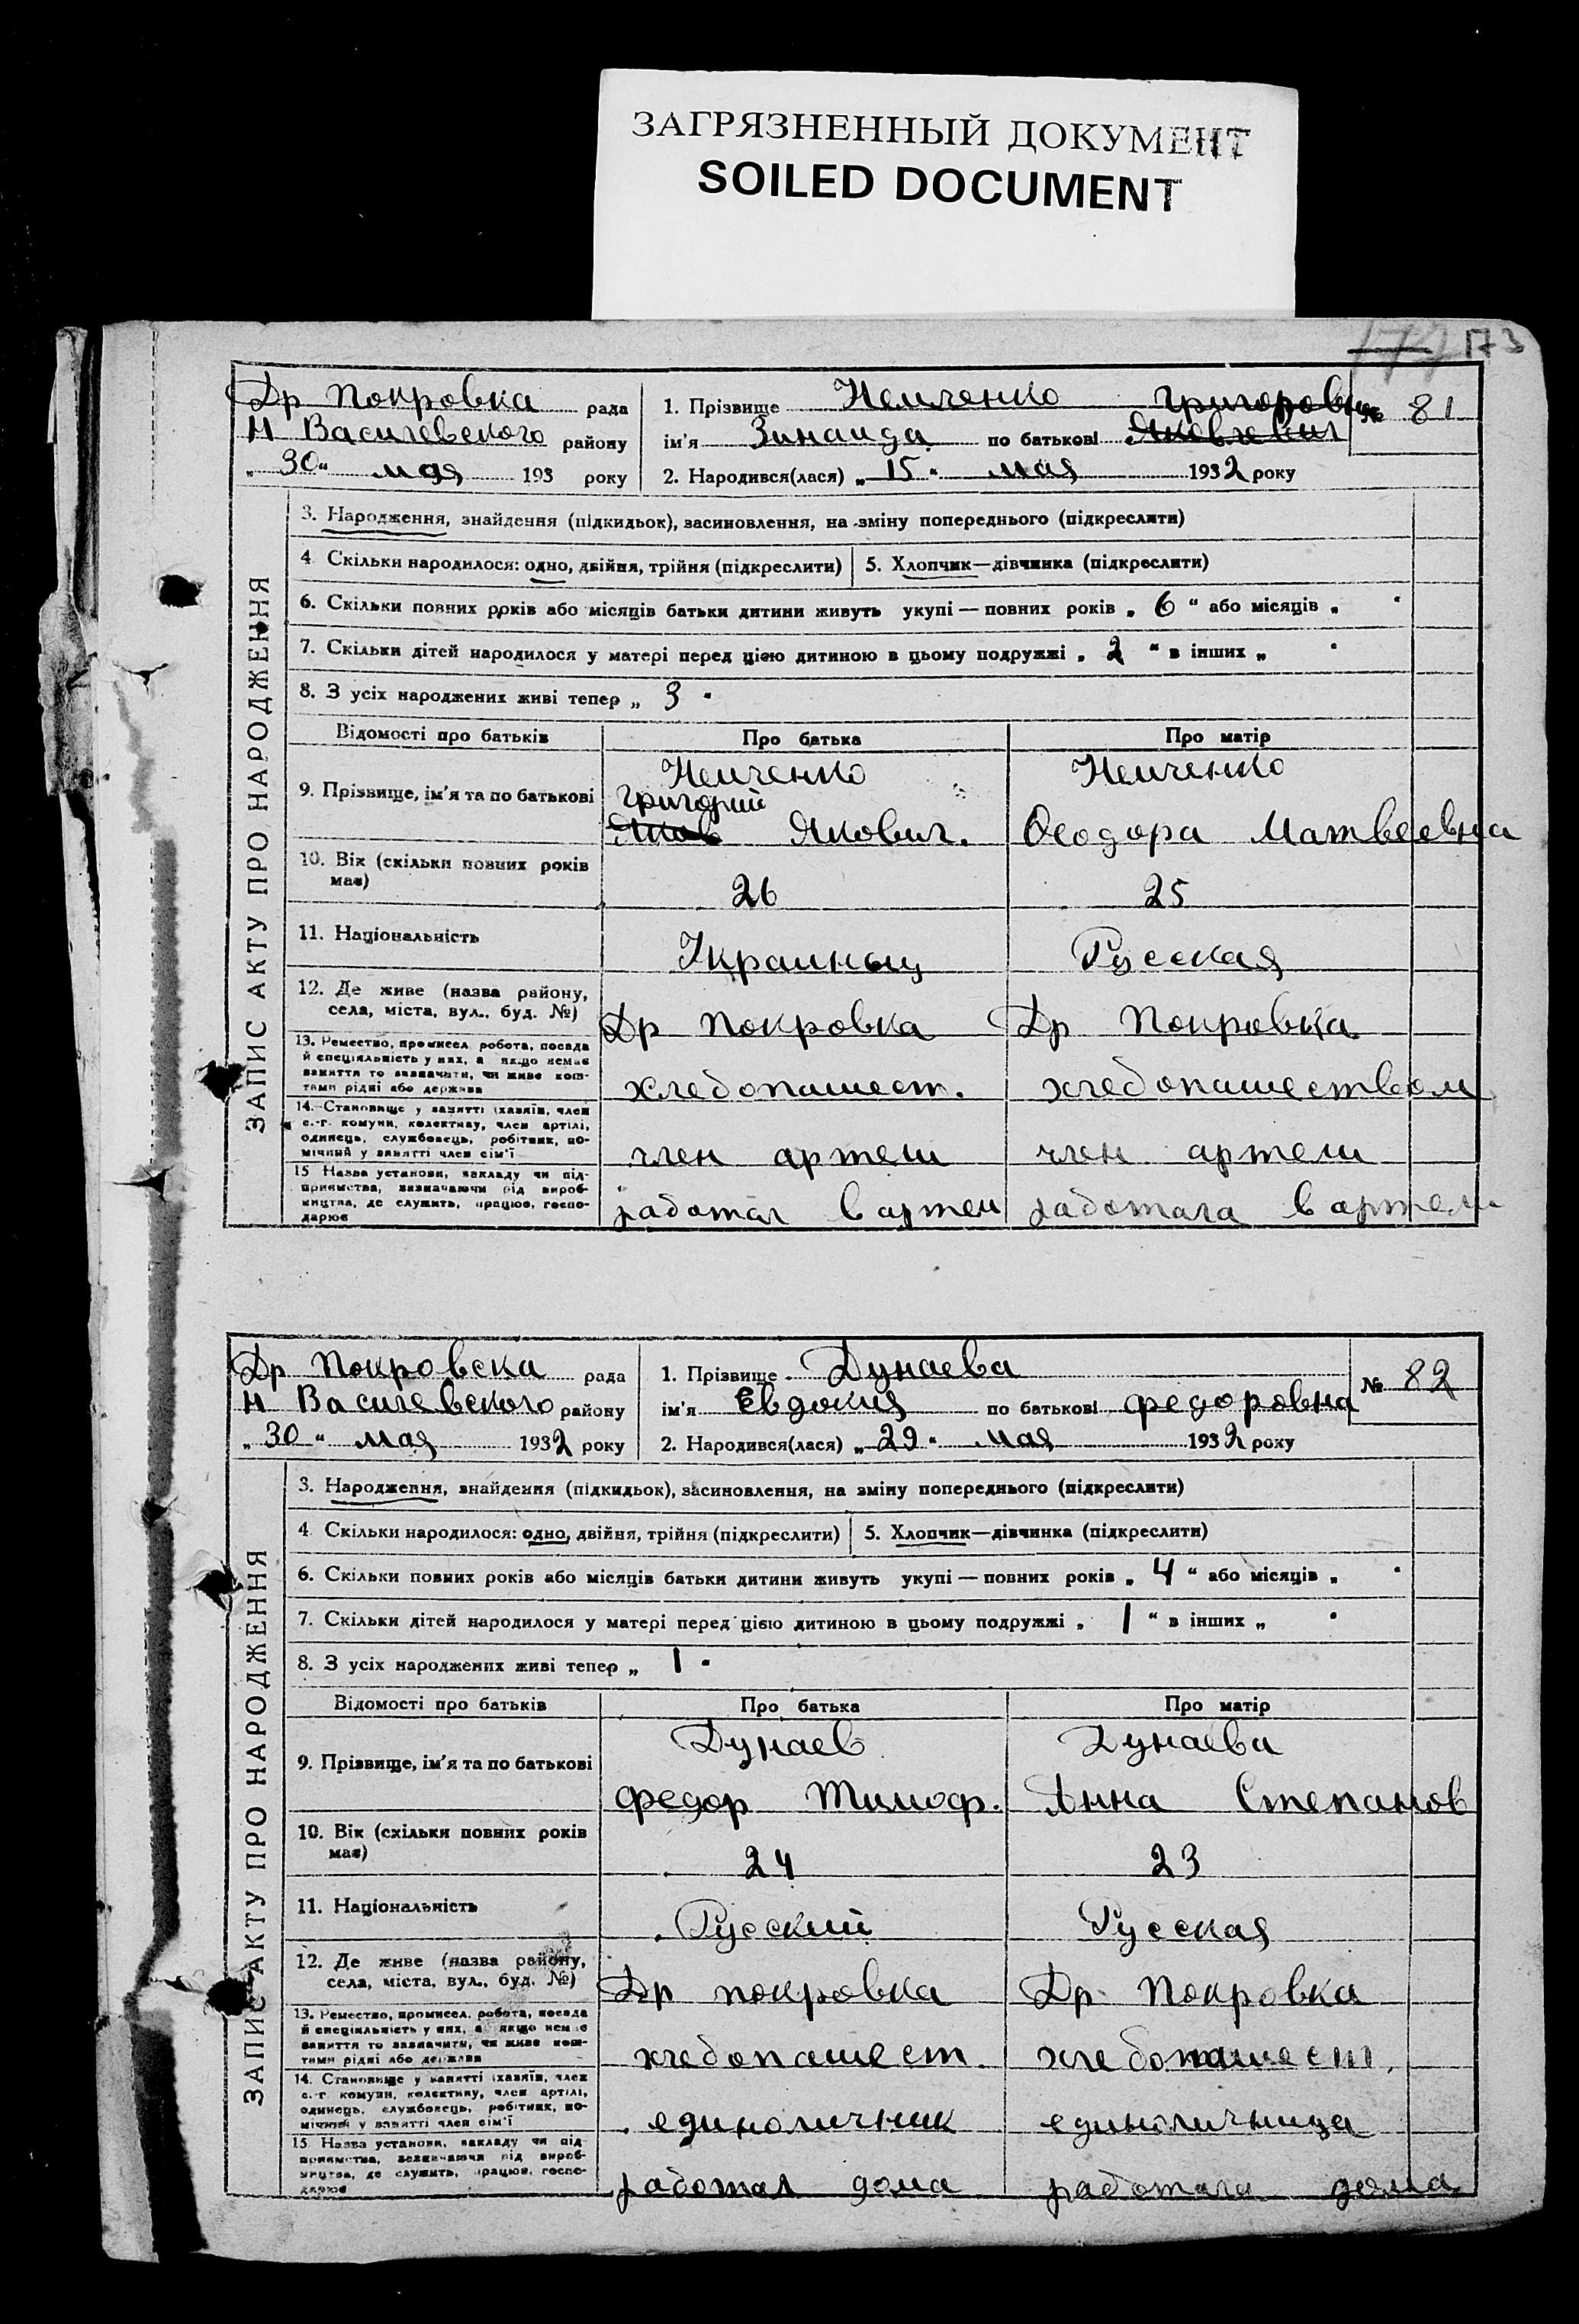 ЗАГРЯЗНЕННЫЙ ДОКУМЕНТ
SOILED DOCUMENT
173
Др Покровка рада
Н Василевского району
„ 30 " мая 193 року
1. Прізвище Немченко Григоровна
ім'я Зинаида по батькові Яковлевич
2. Народився(лася) „ 15 " мая 1932 року
№ 81
ЗАПИС АКТУ ПРО НАРОДЖЕННЯ
3. Народження, знайдення (підкидьок), засиновлення, на зміну попереднього (підкреслити)
4 Скільки народилося: одно, двійня, трійня (підкреслити) 5. Хлопчик—дівчинка (підкреслити)
6. Скільки повних років або місяців батьки дитини живуть укупі — повних років „ 6 " або місяців „ "
7. Скільки дітей народилося у матері перед цією дитиною в цьому подружжі „ 2 " в інших „ "
8. З усіх народжених живі тепер „ 3 "
Відомості про батьків Про батька Про матір
9. Прізвище, ім'я та по батькові
Немченко Немченко
Григорий
Яков Якович. Феодора Матвеевна
10. Вік (скільки повних років
має)
26 25
11. Національність
Украиныц Русская
12. Де живе (назва району,
села, міста, вул., буд. №)
Др Покровка Др Покровка
13. Ремество, промисел, робота, посада
й спеціяльність у них, а якщо немає
заняття то зазначити, чи живе кош-
тами рідні або держава
хлебопашест. хлебопашеством
14. Становище у занятті (хазяїн, член
с.-г. комуни, колективу, член артілі,
одинець, службовець, робітник, по-
мічний у занятті член сім'ї
член артели член артели
15 Назва установи, закладу чи під-
приємства, зазначаючи рід вироб-
ництва, де служить, працює, госпо-
дарює
работал в артели работала в артели
Др Покровска рада
Н Василевского району
„ 30 " мая 1932 року
1. Прізвище Дунаева
ім'я Евдокия по батькові Федоровна
2. Народився(лася) „ 29 " мая 1932 року
№ 82
ЗАПИС АКТУ ПРО НАРОДЖЕННЯ
3. Народження, знайдення (підкидьок), засиновлення, на зміну попереднього (підкреслити)
4 Скільки народилося: одно, двійня, трійня (підкреслити) 5. Хлопчик—дівчинка (підкреслити)
6. Скільки повних років або місяців батьки дитини живуть укупі — повних років „ 4 " або місяців „ "
7. Скільки дітей народилося у матері перед цією дитиною в цьому подружжі „ 1 " в інших „ "
8. З усіх народжених живі тепер „ 1 "
Відомості про батьків Про батька Про матір
9. Прізвище, ім'я та по батькові
Дунаев Дунаева
Федор Тимоф. Анна Степанов
10. Вік (скільки повних років
має)
24 23
11. Національність
Русский Русская
12. Де живе (назва району,
села, міста, вул., буд. №)
Др покровка Др Покровка
13. Ремество, промисел, робота, посада
й спеціяльність у них, а якщо немає
заняття то зазначити, чи живе кош-
тами рідні або держави
хлебопашест. хлебопашест.
14. Становище у занятті (хазяїн, член
с.-г. комуни, колективу, член артілі,
одинець, службовець, робітник, по-
мічний у занятті член сім'ї
единоличник единоличница
15. Назва установи, закладу чи під-
приємства, зазначаючи рід вироб-
ництва, де служить, працює, госпо-
дарює
работал дома работала дома